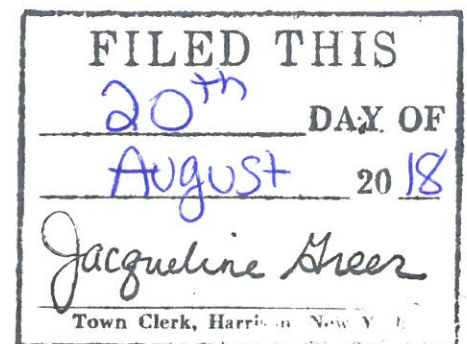 FILED THIS
20th DAY OF
August 2018
Jacqueline Greer
Town Clerk, Harrison New Y